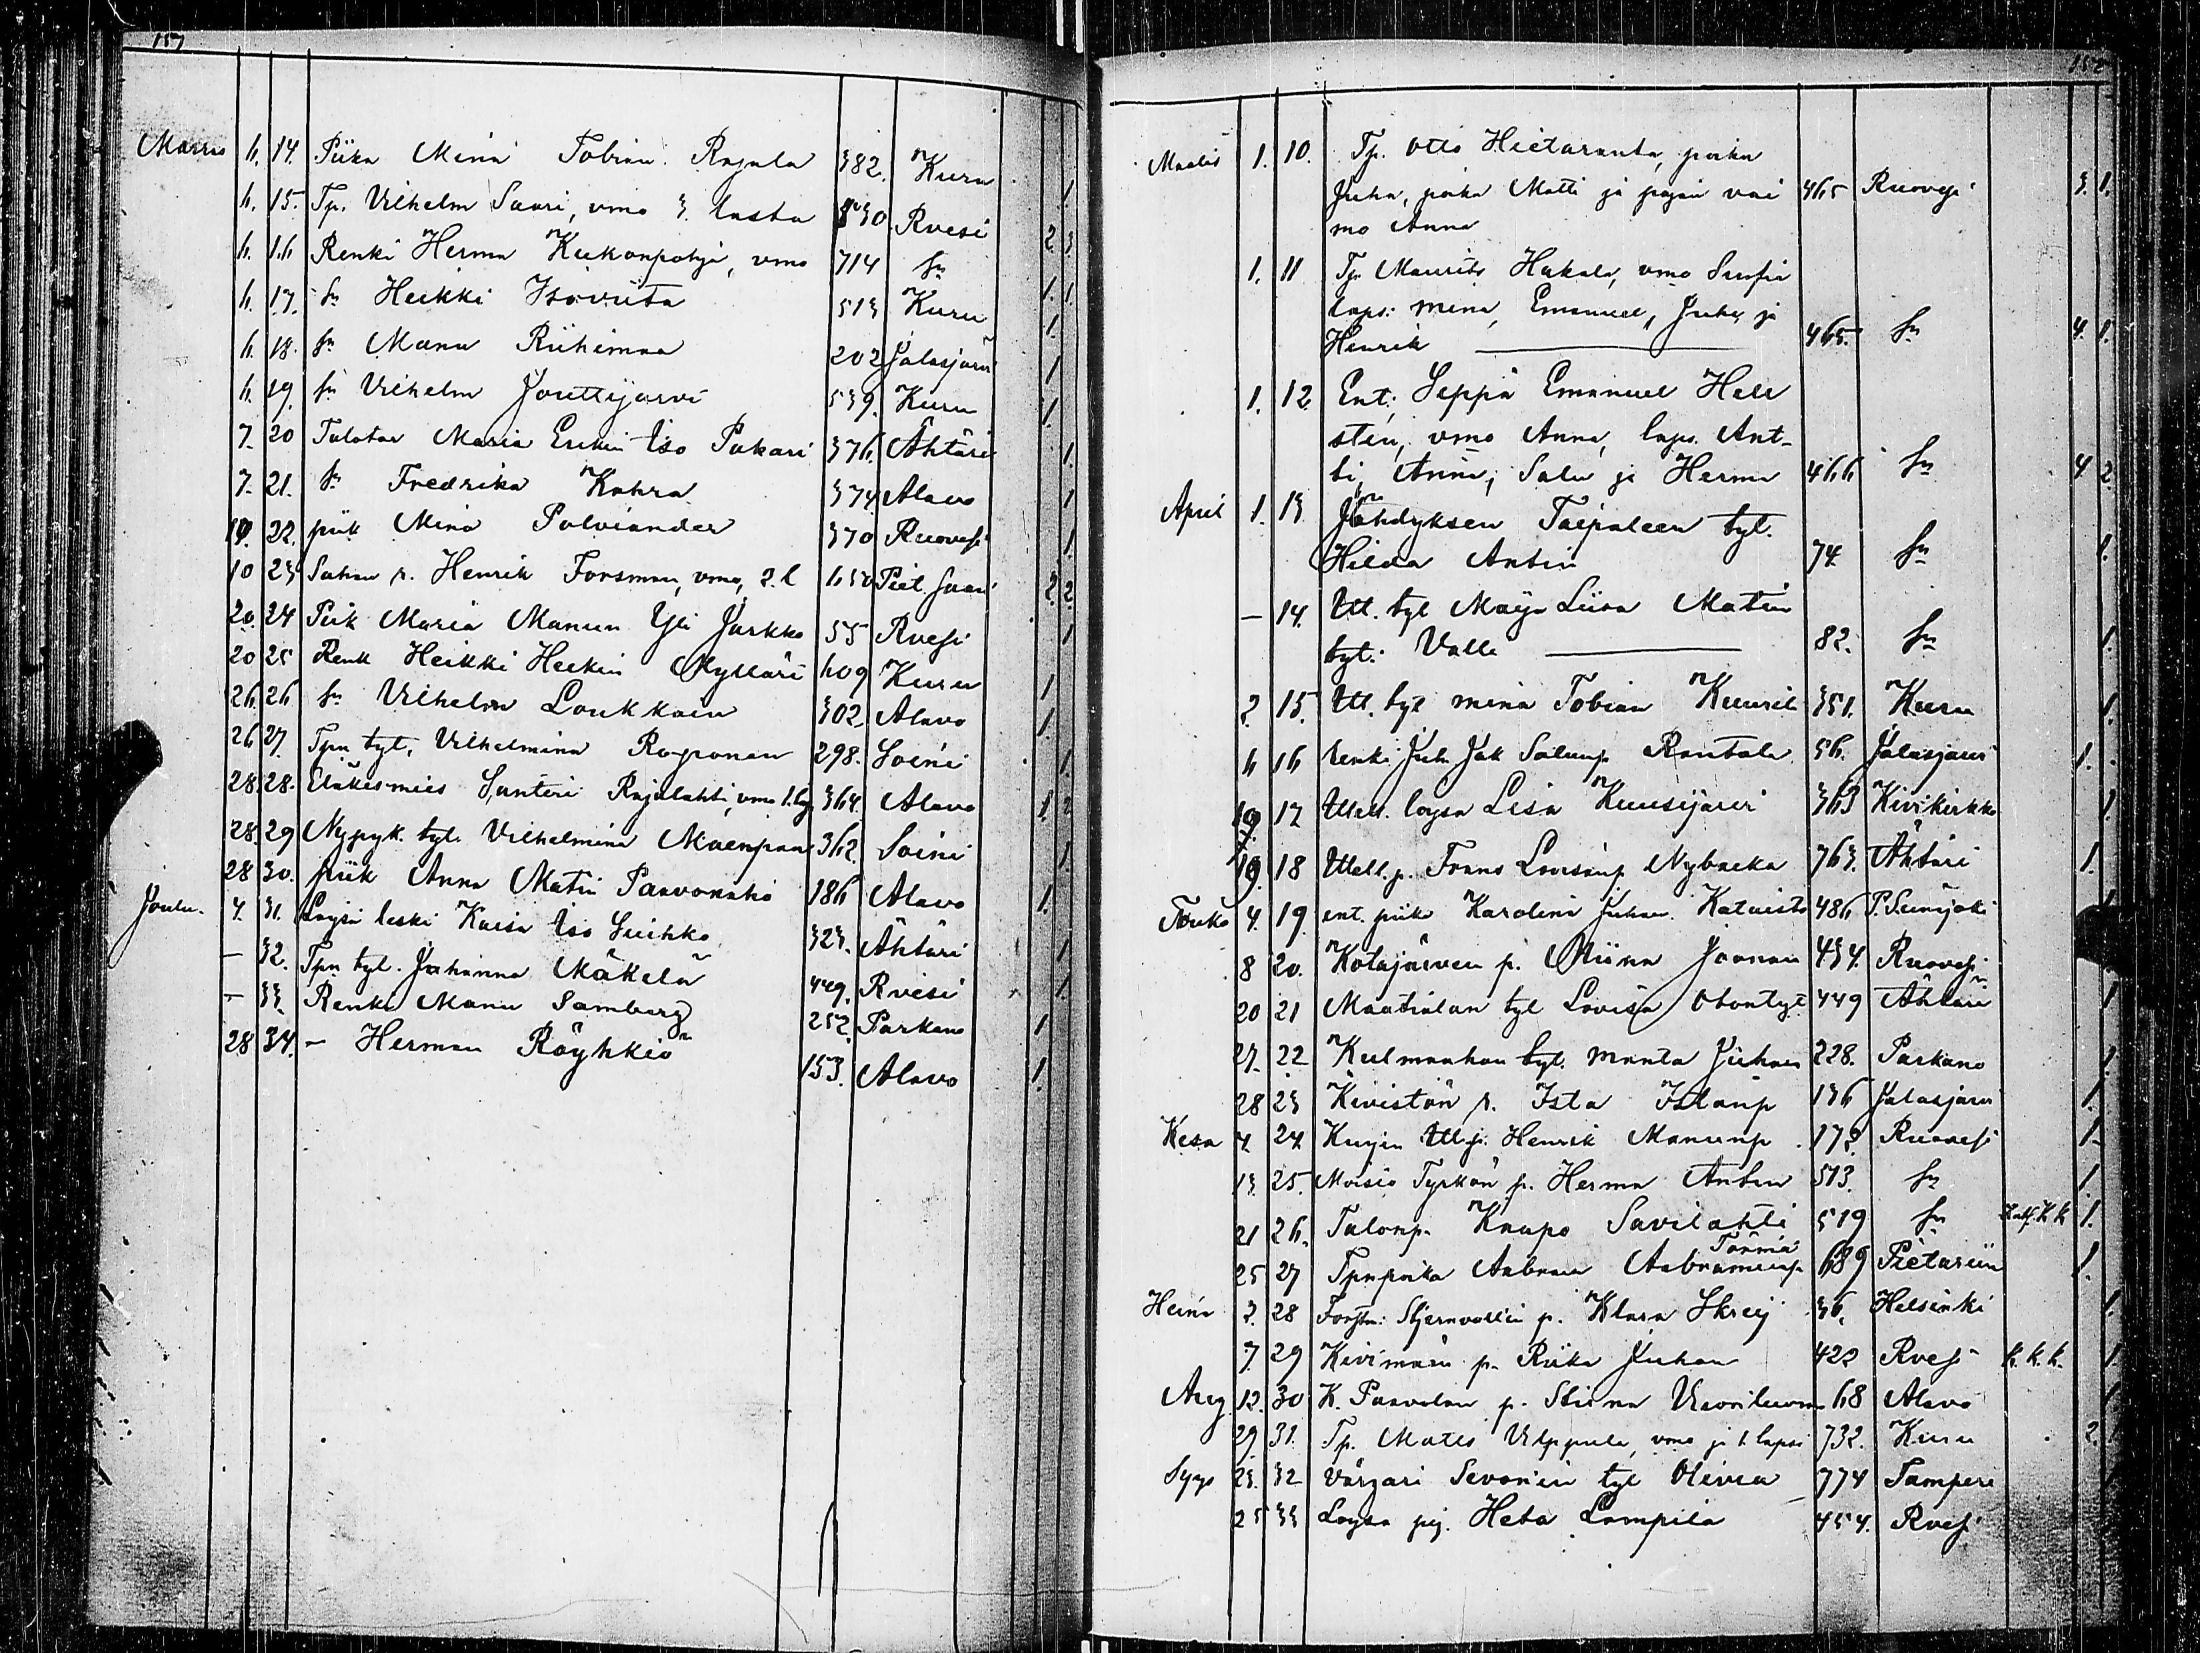 157
Marras 6. 14. Piika Mina Tobian Rajala 382. Kuru 1
6. 15. Tp. Vilhelm Saari, vmo 3. lasta 830. Rvesi 2 3
6. 16 Renki Herman Keikonpohja, vmo 714 sn 1. 1
6. 17. sn Heikki Isoviita 513 Kuru 1.
6. 18. sn Manu Riihimaa 202 Jalasjärvi 1
6. 19. sn Vilhelm Jouttijärvi 539. Kuru 1.
7. 20 Talotar Maria Erkin Iso Pakari 376. Ähtäri 1.
7. 21. sn Fredrika Kahra 374 Alavo 1
10. 22. piik Mina Polviander 370 Ruovesi 1.
10 23 Henrik Forsman, vmo, 2. l 650 Piet. Saari 2. 2.
20. 24 Piik Maria Manun Yli Jarkko 55 Rvesi 1
20 25 Renk Heikki Heikin Mylläri 609 Kuru 1
26. 26 sn Vilhelm Loukkain 302. Alavo 1.
26 27. Tpn tyt. Vilhelmina Roponen 298. Soini 1.
28. 28. Eläkesmies Santeri Rajalahti, vmo 1. 364. Alavo 1 2
28. 29 Nypyk. tyt. Vilhelmina Maenpaan 362. Soini 1.
28 30. piik Anna Matin Paavonaho 186 Alavo 1.
Joulu. 4. 31. Loysä leski Kaisa Iso Suihko 323. Ähtäri 1
— 32. Tpn tyt. Johanna Mäkelä 449. Rvesi 1.
— 33. Renki Manu Samberg 252. Parkano 1
28 34. — Herman Röyhkiö 153. Alavo 1.
158
Maalis 1. 10. Tp. Otto Hietaranta, poika
Juha, poika Matti ja pojan vai 465 Ruovesi 3. 1.
mo Anna
1. 11 Tp. Maurits Hakala, vmo Saufia
laps: Mina, Emanuel, Juha ja
Henrik — 465. sn 4. 1.
1. 12. Ent. Seppä Emanuel Hell
stén, vmo Anna, laps. Ant-
ti, Anna, Salu ja Herman 466 sn 4 2.
April 1. 13 Jähdyksen Taipaleen tyt.
Hilda Antin 74 sn 1.
— 14. Itl. tyt Maija Liisa Matin
tyt. Valli — 82. sn 1.
2. 15. Itl. tyt Mina Tobian Kuuril 351. Kuru 1.
6 16 renki Juh. Jak Salunp Rantala 56. Jalasjärvi 1.
19 17 Itell. loysä Lisa Kuusijärvi 363 Kivikirkko 1.
19. 18 Itell. p. Frans Lovisanp Nybacka 763. Ähtäri 1.
Touko 4. 19. ent. piika Karolina Juhan. Katvisto 486 P. Seinäjoki 1
8 20. Kotajärven p. Miina Joonan 434. Ruovesi
20 21 Maatialan tyt Lovisa Otontyt 449 Ähtäri 1
27. 22 Kulmaahan tyt. Manta Juhan 228. Parkano 1.
28 23 Kivistön r. Ista Istanp 136 Jalasjärvi 1.
Kesa 4. 24. Kujin Itl. p. Henrik Manunp 172. Ruovesi 1.
13. 25. Moisio Tyrkön p. Herman Antin 513. sn 1.
21 26. Talonp. Kaapo Savilahti 519 sn 1.
Törmä
25 27 Tpnpoika Aabram Aabraminp. 689 Pietariin 1.
Heinä 2. 28 Forstm. Stjernvallin p. Klara Skreij 36. Helsinki 1.
7 29 Kivimäen p. Riika Juhan 422 Rvesi k. k. k. 1.
Aug. 12. 30 K. Paavolan p. Stiina 68 Alavo 1
29. 31. Tp. Mats Ulppula, vmo ja 1. lapsi 732. Kuru 2.
Syys 23. 32 Värjäri Sevonin tyt Olivia 774 Tampere 1
25 33 Loysä pij. Heta Lampila 454. Rvesi